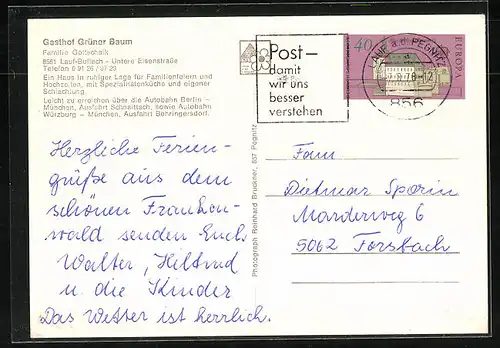 Gasthof Grüner Baum
Familie Gottschalk
8561 Lauf-Bullach - Untere Eisenstraße
Telefon 0 91 26 / 87 29
Ein Haus in ruhiger Lage für Familienfeiern und
Hochzeiten, mit Spezialitätenküche und eigener
Schlachtung.
Leicht zu erreichen über die Autobahn Berlin –
München, Ausfahrt Schnaittach, sowie Autobahn
Würzburg – München, Ausfahrt Behringersdorf.
Herzliche Ferien-
grüße aus dem
schönen Franken-
wald senden Euch
Walter, Hiltrud
u. die Kinder
Das Wetter ist herrlich.
Photograph Reinhard Bruckner, 857 Pegnitz
Post–
damit
wir uns
besser
verstehen
a. d. PEGNITZ
78-12
856
40
EUROPA
Fam
Dietmar Sporin
Marderweg 6
5062 Forsbach